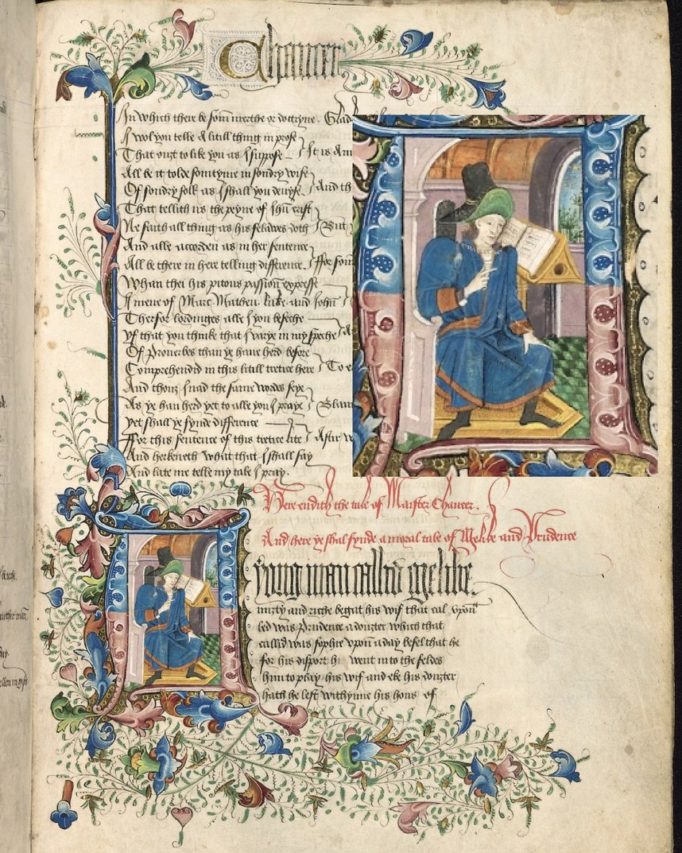 Chaucer
In which there be som merthe or doctryne Glad
I wol you telle A litill thing in prose
That ouzt to like you as I suppose It is A m
All be it tolde somtyme in sondry wise
Of sondry folk as I shall you devyse And th
That tellith us the peyne of Ihu crist
Ne saith all thing as his felawes doth But
And alle accorden as in her sentence
All be there in here telling difference ffor som
Whan thei his pitous passion expresse
I mene of Marc Matheu luke and John
Therfor lordinges alle I you beseche
yf that you thinke that I varye in my speche
Of Prouerbes than ye haue herd before
Comprehended in this litill tretice here To e
And thouz I nad the same wordes seye
As ye han herd yet to alle you I praye
yet shall ye fynde difference
ffor this sentence of this tretice lite After
And herkeneth whitt that I shall say
And late me telle my tale I pray
Here endith the tale of Maister Chaucer.
And here ye shal fynde a moral tale of Melibe and Prudence
A youg man callid Melibe
mizty and riche begatt his wif that cal upon
hed was Prudence a douzter which that
callid was Sophie upon a day befel that he
for his disport he went in to the feldes
him to play his wif and eke his douzter
hath he left withynne his hous of